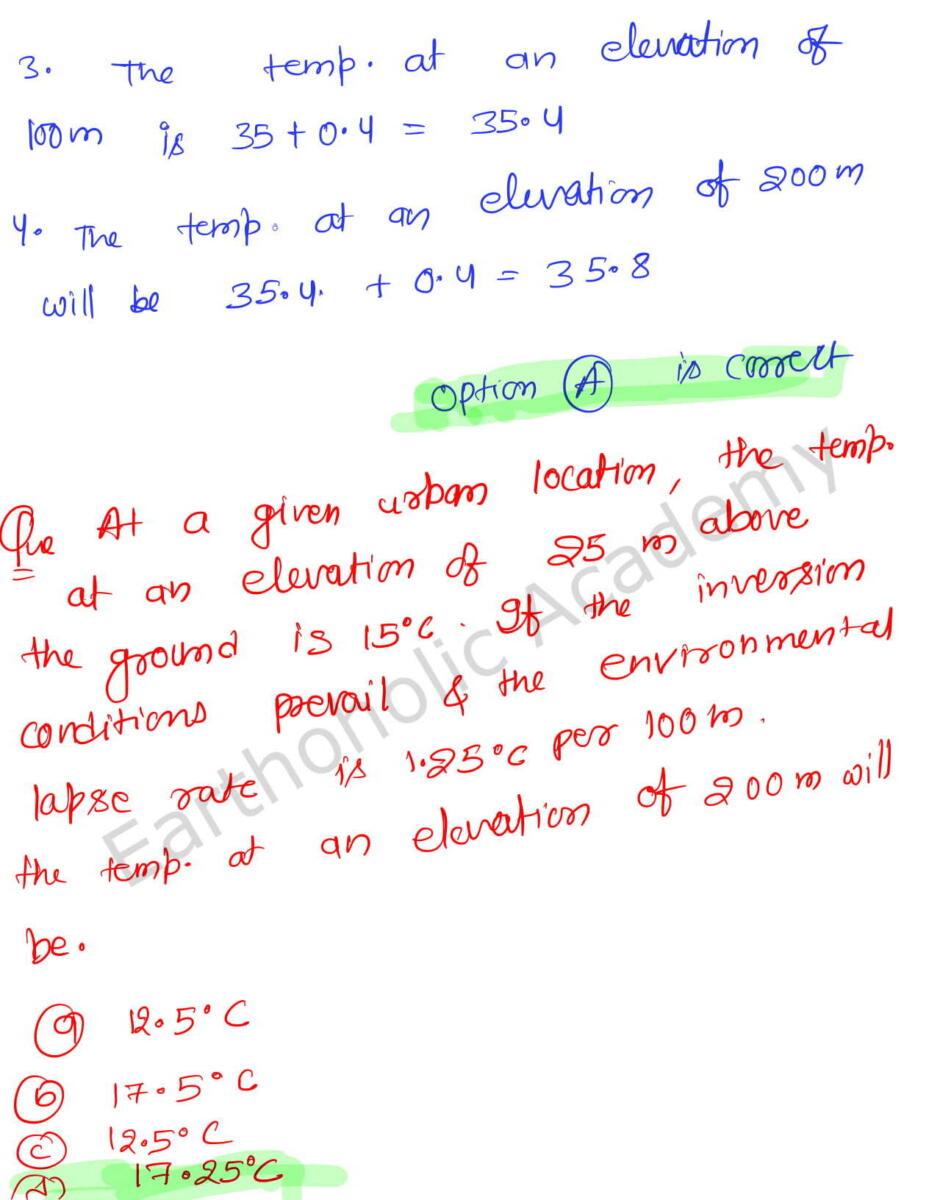 3. The temp. at an elevation of
100m is 35 + 0.4 = 35.4
4. The temp. at an elevation of 200m
will be 35.4. + 0.4 = 35.8
Option A is correct
Que At a given urban location, the temp.
at an elevation of 25 m above
the ground is 15°C. If the inversion
conditions prevail & the environmental
lapse rate is 1.25°C per 100 m.
the temp. at an elevation of 200 m will
be.
a 12.5°C
b 17.5°C
c 12.5°C
d 17.25°C
Earthoholic Academy